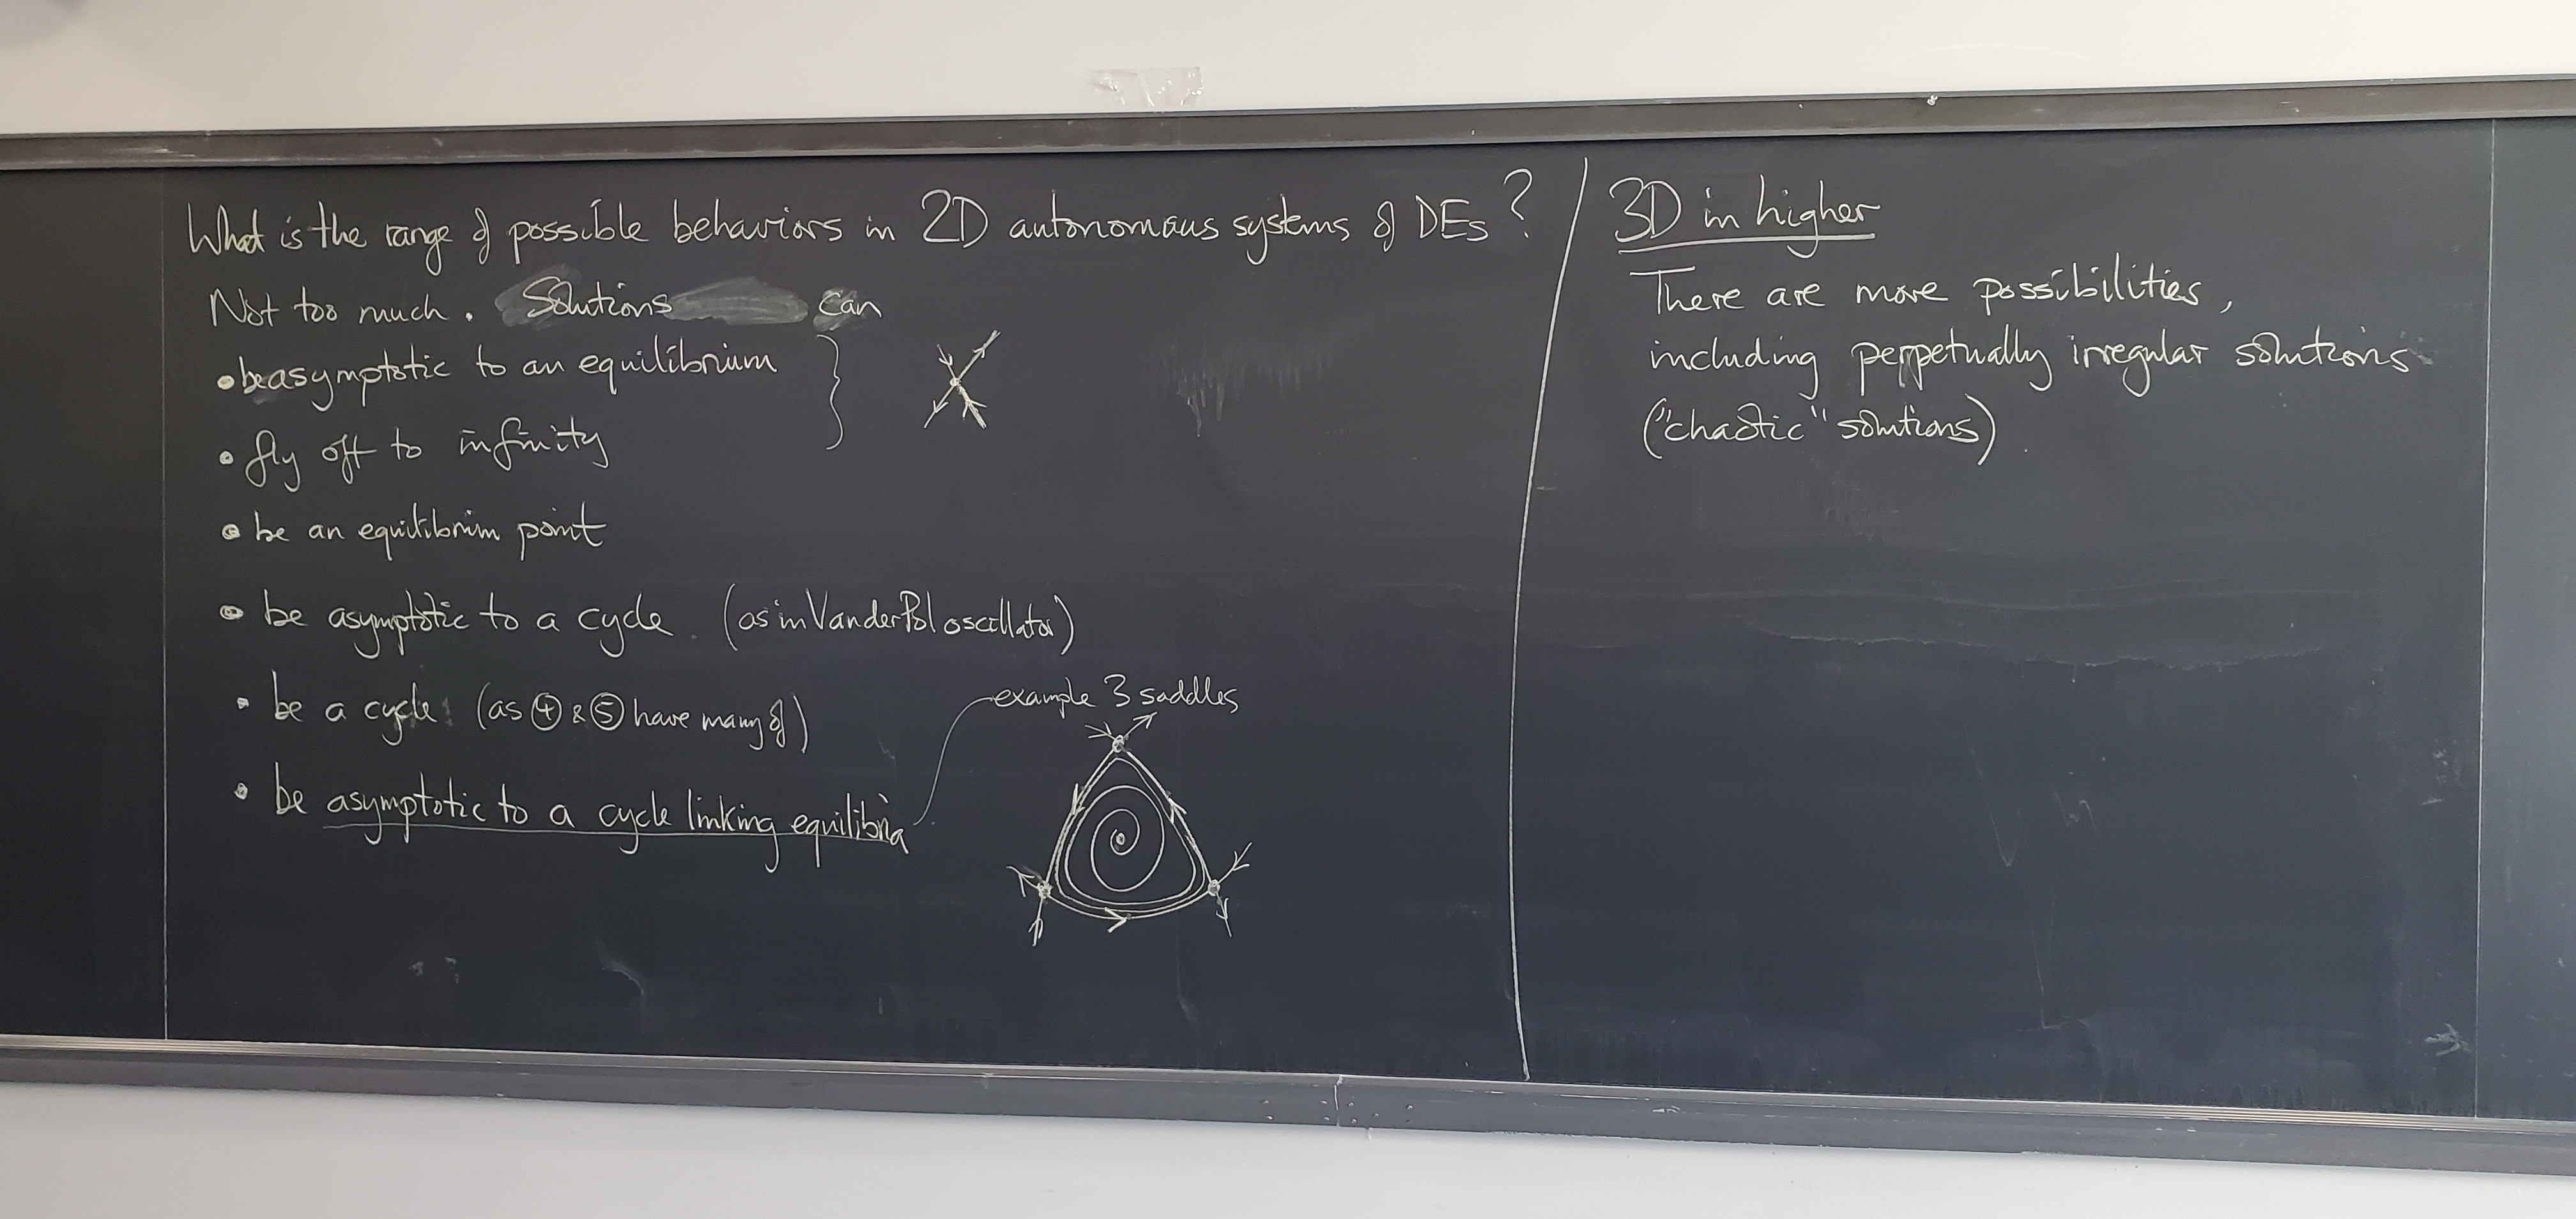 What is the range of possible behaviors in 2D autonomous systems of DEs?
Not too much. Solutions can
• be asymptotic to an equilibrium
• fly off to infinity
• be an equilibrium point
• be asymptotic to a cycle. (as in Van der Pol oscillator)
• be a cycle (as ④ & ⑤ have many of)
• be asymptotic to a cycle linking equilibria
example 3 saddles
3D in higher
There are more possibilities,
including perpetually irregular solutions
("chaotic" solutions)